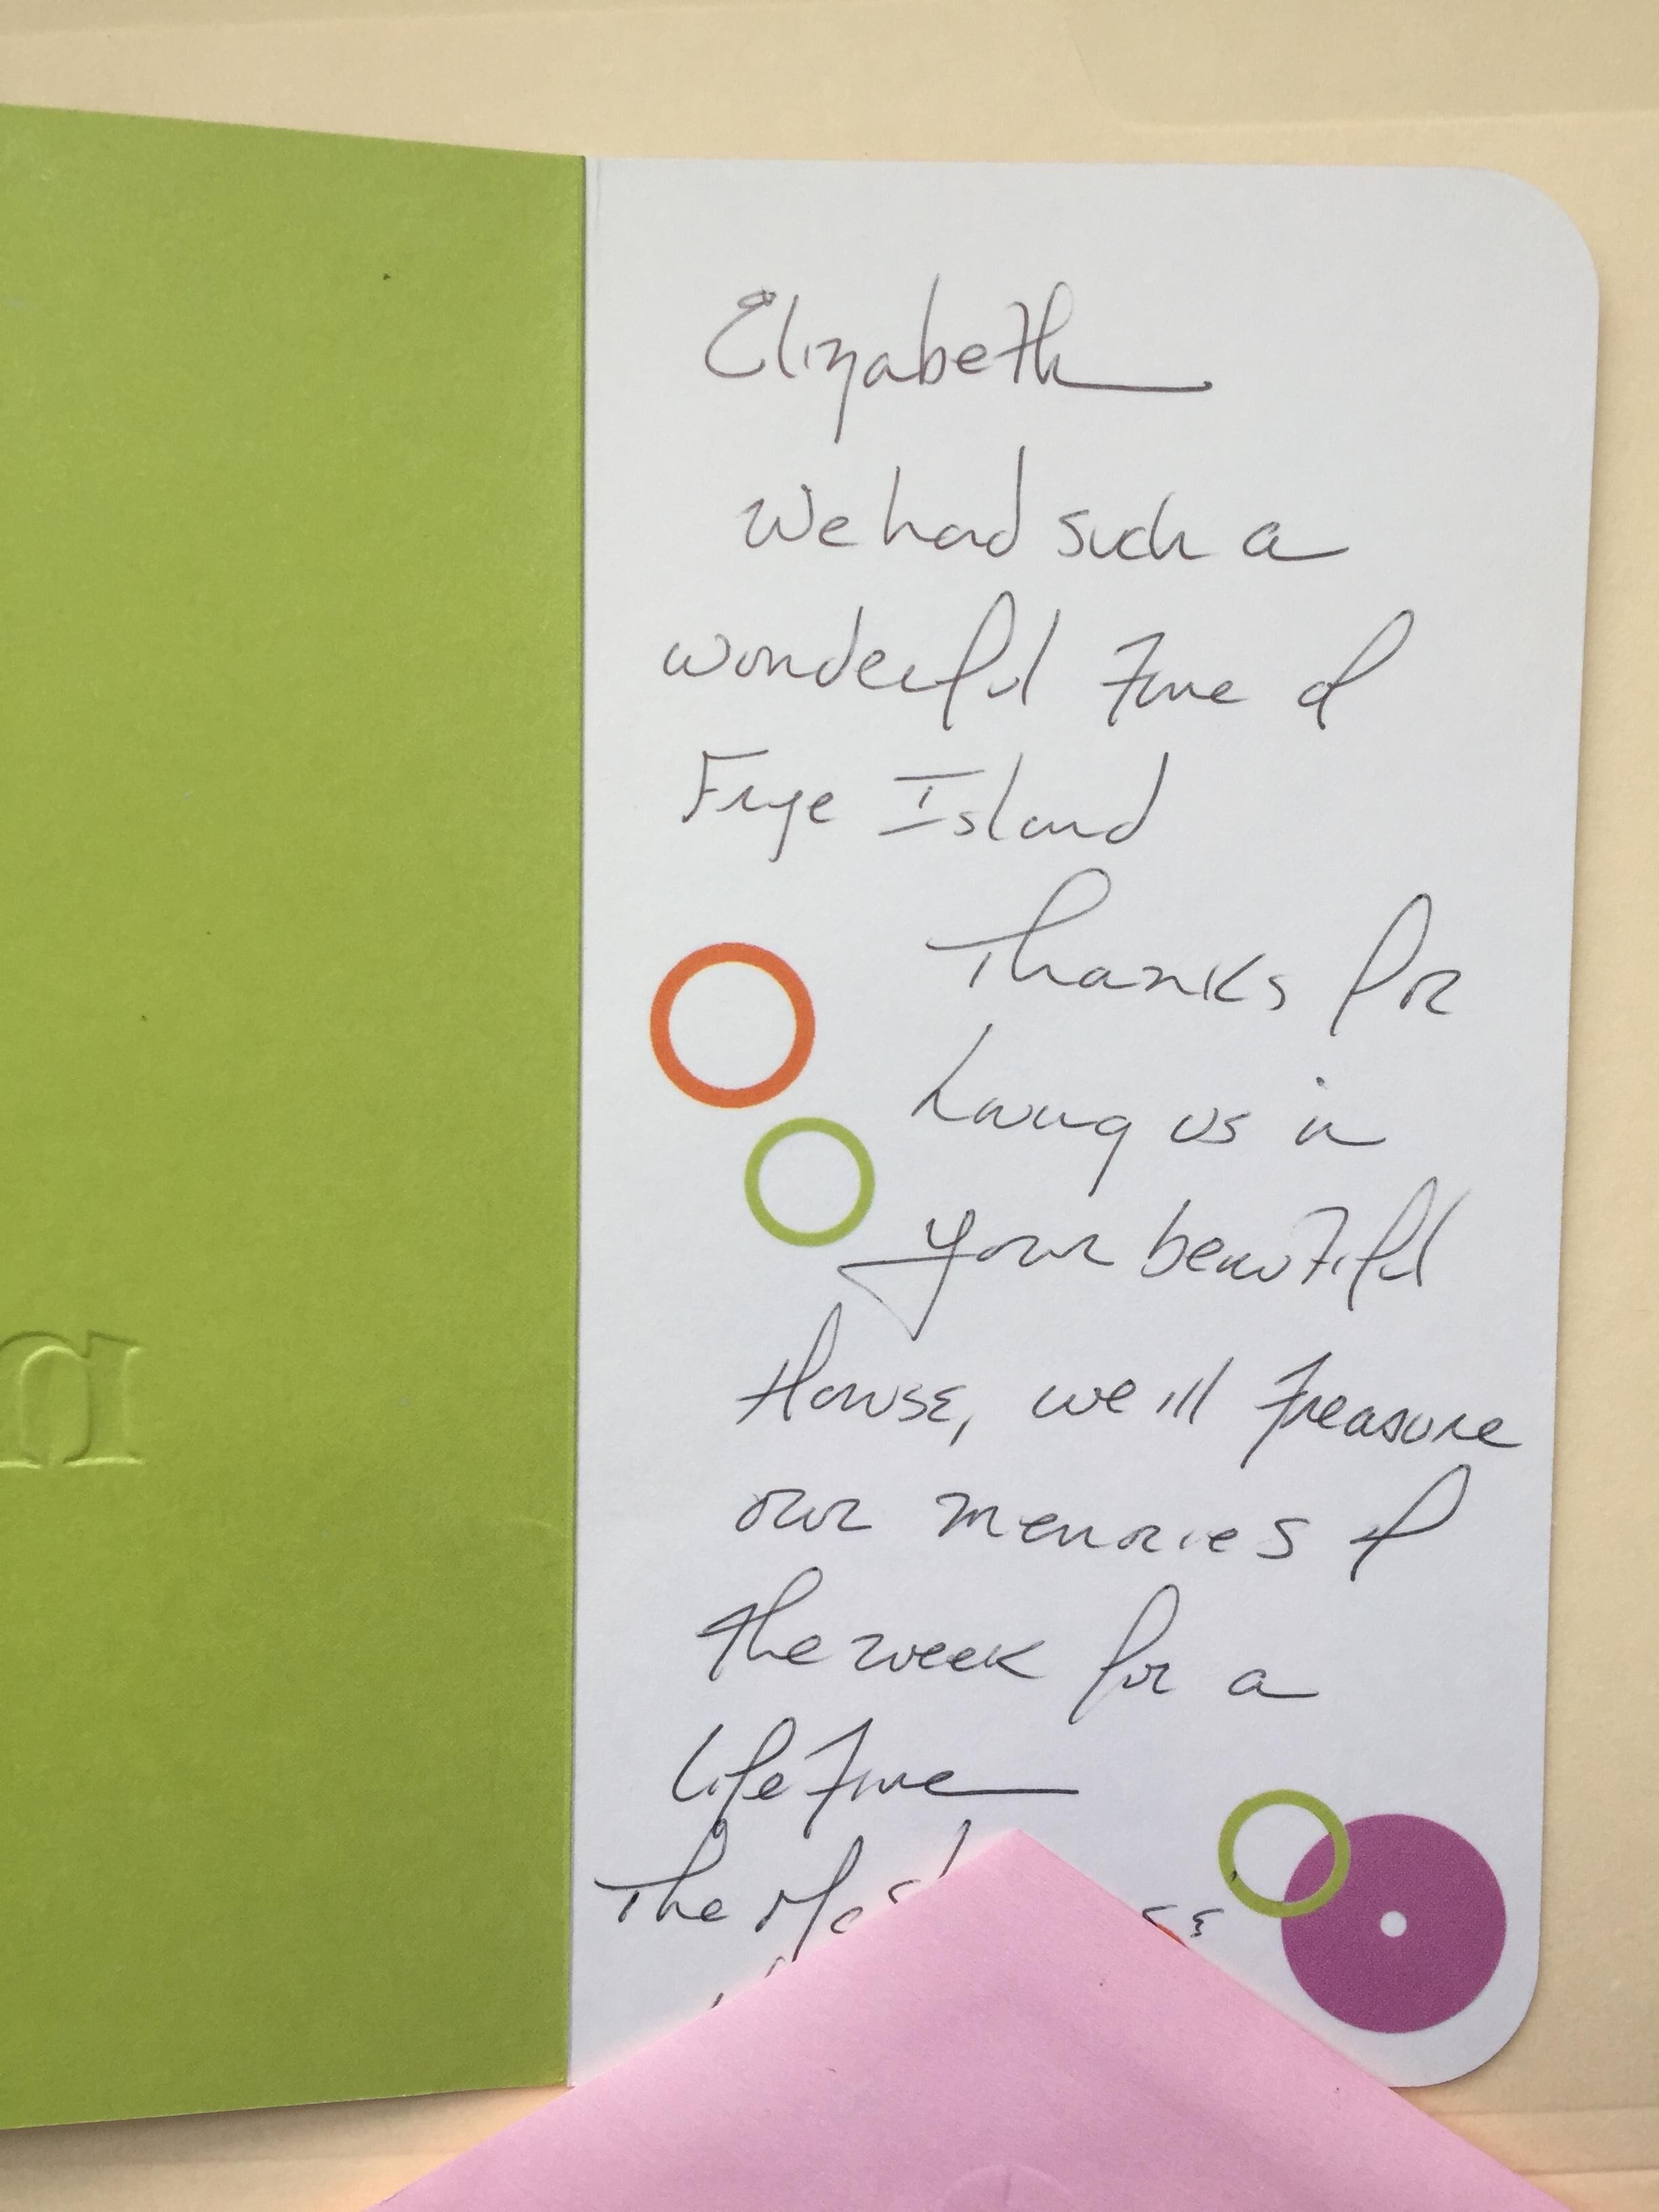 Elizabeth
We had such a
wonderful time at
Frye Island
Thanks for
having us in
your beautiful
House, we'll treasure
our memories of
the week for a
Lifetime
The